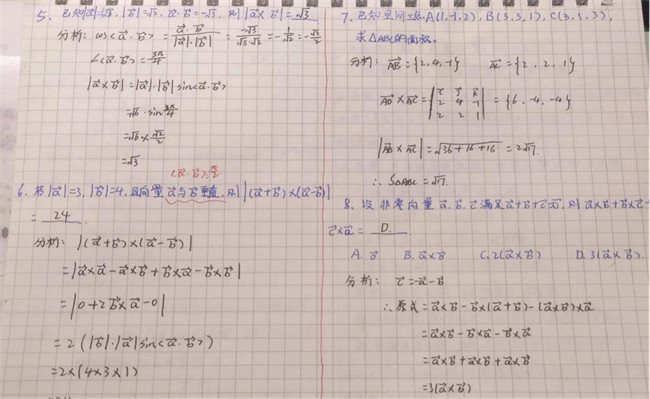 5. 已知|a⃗|=√3, |b⃗|=√2, a⃗·b⃗=-√3, 则|a⃗×b⃗|=√3
分析: cos<a⃗·b⃗> = a⃗·b⃗/|a⃗|·|b⃗| = -√3/√3·√2 = -1/√2 = -√2/2
<a⃗·b⃗>=3π/4
|a⃗×b⃗|=|a⃗|·|b⃗|sin<a⃗·b⃗>
=√6·sin3π/4
=√6×√2/2
=√3
<a⃗·b⃗>=π/2
6. 若|a⃗|=3, |b⃗|=4, 且向量a⃗与b⃗垂直, 则|(a⃗+b⃗)×(a⃗-b⃗)|
= 24
分析: |(a⃗+b⃗)×(a⃗-b⃗)|
=|a⃗×a⃗-a⃗×b⃗+b⃗×a⃗-b⃗×b⃗|
=|0+2b⃗×a⃗-0|
=2(|b⃗|·|a⃗|sin<a⃗·b⃗>)
=2×(4×3×1)
7. 已知空间三点A(1,-1,2), B(3,3,1), C(3,1,3),
求△ABC的面积.
分析: AB⃗={2,4,-1} AC⃗={2,2,1}
AB⃗×AC⃗=|i⃗ j⃗ k⃗
2 4 -1
2 2 1|={6,-4,-4}
|AB⃗×AC⃗|=√36+16+16=2√17.
∴ S△ABC=√17.
8. 设非零向量a⃗,b⃗,c⃗满足a⃗+b⃗+c⃗=0⃗, 则a⃗×b⃗+b⃗×c⃗+
c⃗×a⃗= D.
A. 0⃗ B. a⃗×b⃗ C. 2(a⃗×b⃗) D. 3(a⃗×b⃗)
分析: c⃗=-a⃗-b⃗
∴原式=a⃗×b⃗-b⃗×(a⃗+b⃗)-(a⃗+b⃗)×a⃗
=a⃗×b⃗-b⃗×a⃗-b⃗×a⃗
=a⃗×b⃗+a⃗×b⃗+a⃗×b⃗
=3(a⃗×b⃗)